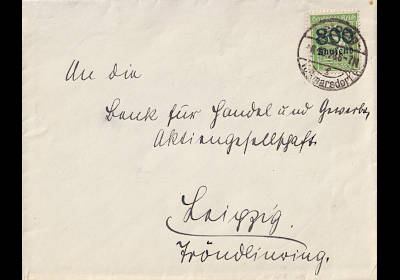 800
Tausend
Wilmersdorf
An die
Bank für Handel und Gewerbe,
Aktiengesellschaft
Leipzig.
Tröndlinring.